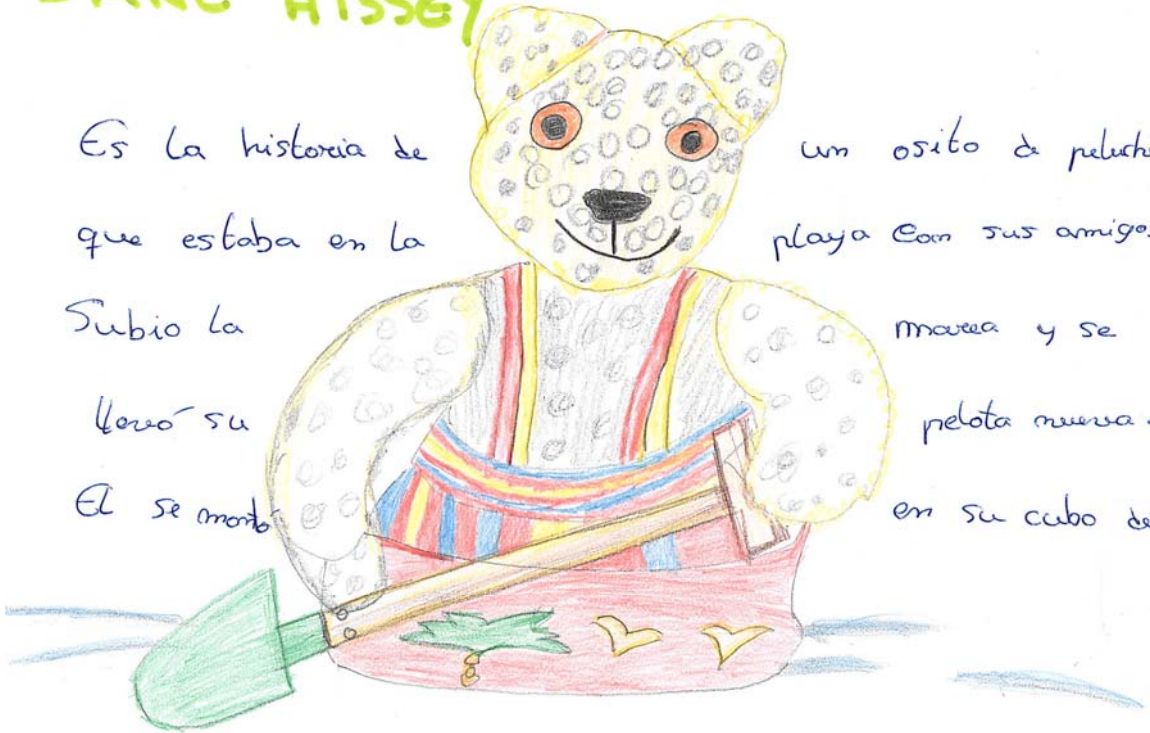 JANE HISSEY
Es la historia de un osito de peluche
que estaba en la playa con sus amigos.
Subio la marea y se
llevó su pelota nueva.
El se montó en su cubo de